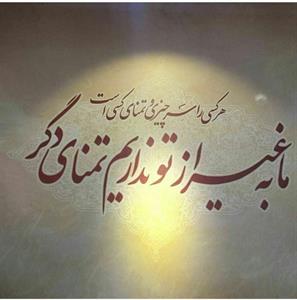 هر کسی را سر چیزی و تمنای کسی است
ما به غیر از تو نداریم تمنای دگر